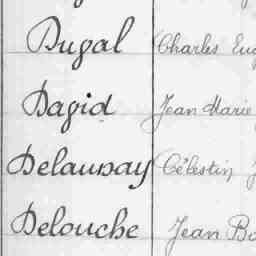 Dugal Charles Eug
Dagid Jean Marie
Delaunay Célestin J
Delouche Jean Ba